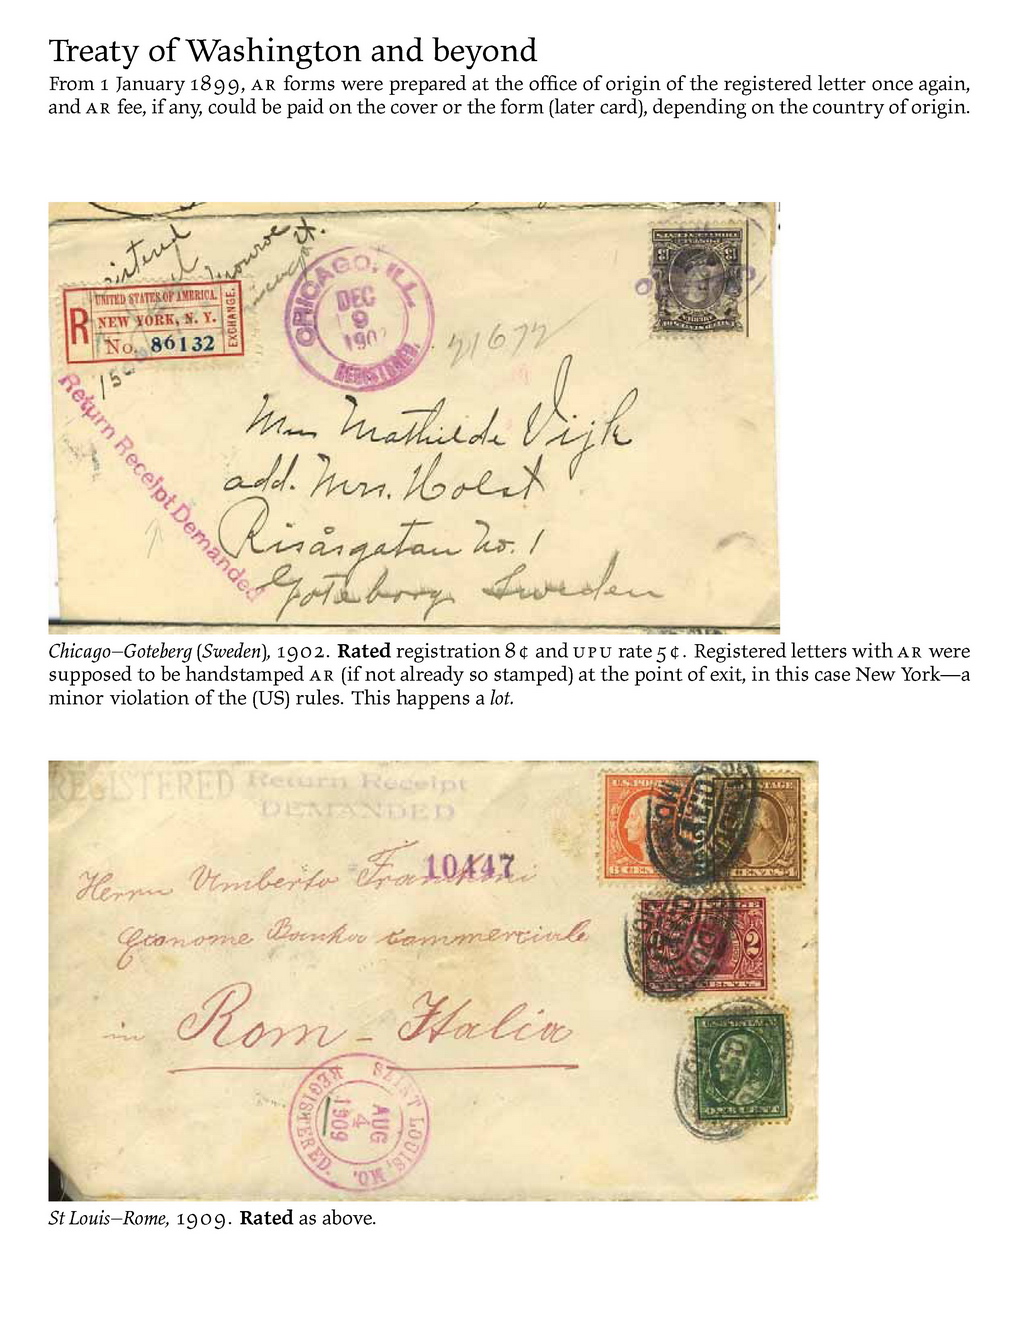 Treaty of Washington and beyond
From 1 January 1899, AR forms were prepared at the office of origin of the registered letter once again,
and AR fee, if any, could be paid on the cover or the form (later card), depending on the country of origin.
UNITED STATES OF AMERICA.
R NEW YORK, N. Y. EXCHANGE.
No. 86132
CHICAGO, ILL.
DEC
9
190
REGISTERED.
21672
Return Receipt Demanded
Mathilde
add. Mrs. Holst
Risåsgatan No. 1
Göteborg Sweden
Chicago–Goteberg (Sweden), 1902. Rated registration 8¢ and UPU rate 5¢. Registered letters with AR were
supposed to be handstamped AR (if not already so stamped) at the point of exit, in this case New York—a
minor violation of the (US) rules. This happens a lot.
REGISTERED Return Receipt
DEMANDED
10447
Herrn Umberto
Banka Commerciale
in Rom - Italia
SAINT LOUIS, MO.
AUG
4
1909
REGISTERED.
2
St Louis–Rome, 1909. Rated as above.